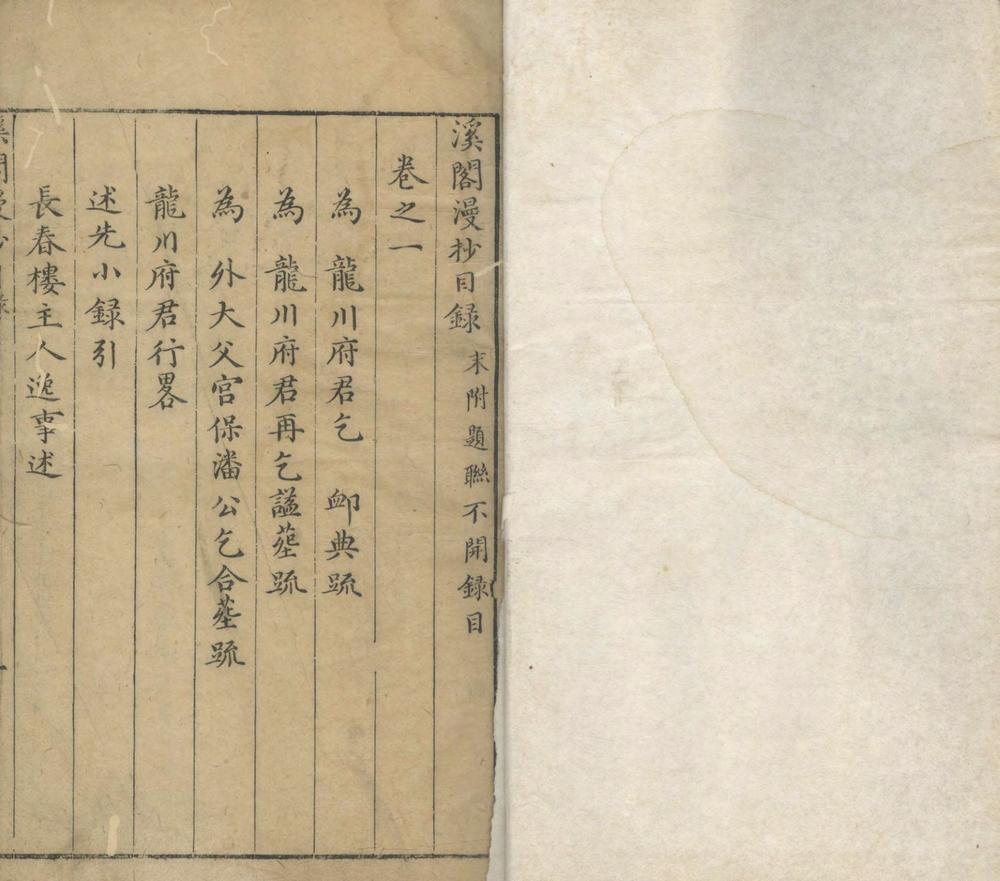 溪閣漫抄目録 末附題聯不開録目
卷之一
為 龍川府君乞 卹典䟽
為 龍川府君再乞謚塟䟽
為 外大父宮保潘公乞合塟䟽
龍川府君行畧
述先小録引
長春樓主人逸事述